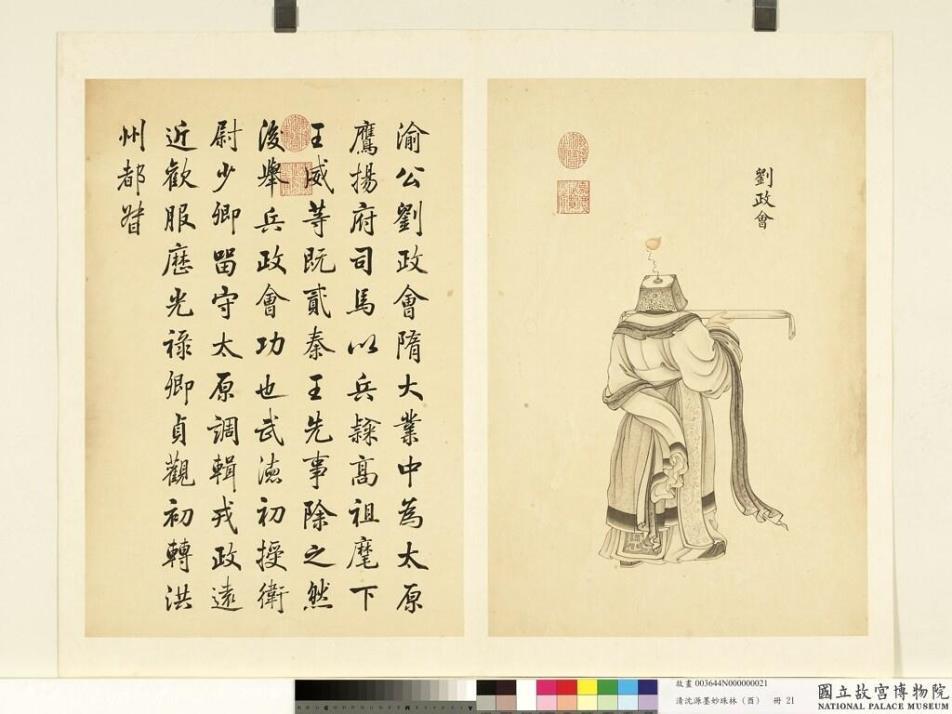 劉政會
渝公劉政會隋大業中為太原
鷹揚府司馬以兵隸高祖麾下
王威等既貳秦王先事除之然
後舉兵政會功也武德初授衛
尉少卿留守太原調輯戎政遠
近歡服歷光祿卿貞觀初轉洪
州都督
故畫003644N000000021
清沈源墨妙珠林(酉) 冊 21
國立故宮博物院
NATIONAL PALACE MUSEUM